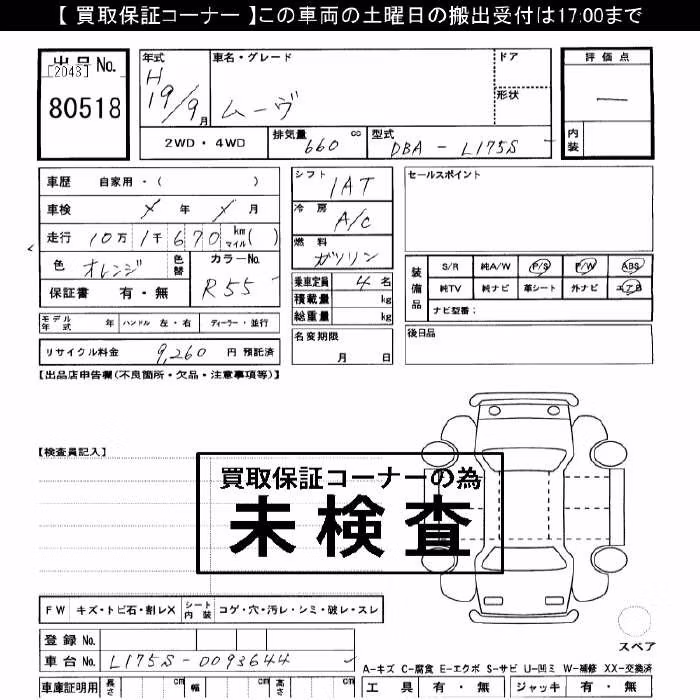 【 買取保証コーナー 】この車両の土曜日の搬出受付は17:00まで
出品 No.
[2043]
80518
年式 H 19/9月
車名・グレード ムーヴ
ドア
形状
評価点 —
内装
2WD・4WD
排気量 660 cc
型式 DBA - L175S
車歴 自家用・( )
車検 年 月
走行 10万1千670 km マイル ( )
色 オレンジ 色替
カラーNo. R55
保証書 有・無
シフト IAT
冷房 A/C
燃料 ガソリン
乗車定員 4 名
積載量 kg
総重量 kg
セールスポイント
装備品
S/R 純A/W P/S P/W ABS
純TV 純ナビ 革シート 外ナビ エアB
ナビ型番:
モデル年式 年 ハンドル 左・右 ディーラー・並行
リサイクル料金 9,260 円 預託済
名変期限 月 日
後日品
【出品店申告欄(不良箇所・欠品・注意事項等)】
【検査員記入】
買取保証コーナーの為
未検査
FW キズ・トビ石・割レX シート内装 コゲ・穴・汚レ・シミ・破レ・スレ
スペア
登録 No.
車台 No. L175S-0093644
A-キズ C-腐食 E-エクボ S-サビ U-凹ミ W-補修 XX-交換済
車庫証明用 長さ cm 幅 cm 高さ cm
工具 有・無 ジャッキ 有・無